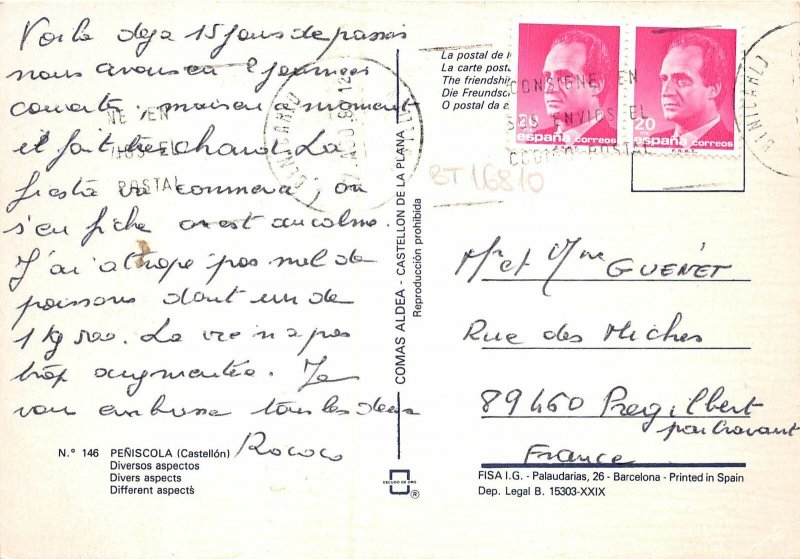 Voila deja 15 jours de passés
nous avons eu 2 journées
couverte, mais en ce moment
il fait très chaud. La
fiesta va commencer, on
s'en fiche on est au calme.
J'ai attrapé pas mal de
poissons dont un de
1 kg 500. La vie n'a pas
trop augmentée. Je
vous embrasse tous les deux
Rococo
N.° 146 PEÑISCOLA (Castellón)
Diversos aspectos
Divers aspects
Different aspects
COMAS ALDEA - CASTELLON DE LA PLANA
Reproducción prohibida
ESCUDO DE ORO
®
La postal de
La carte post
The friendship
Die Freundsch
O postal da a
CONSIGNE EN
SUS ENVIOS EL
CODIGO POSTAL
NE EN
IOS EL
POSTAL
BENICARLO
BENICARLO
20
españa correos
20
españa correos
F.N.M.T.
BT 16810
Mr et Mme GUENET
Rue des Miches
89460 Pregilbert
par Cravant
France
FISA I.G. - Palaudarias, 26 - Barcelona - Printed in Spain
Dep. Legal B. 15303-XXIX